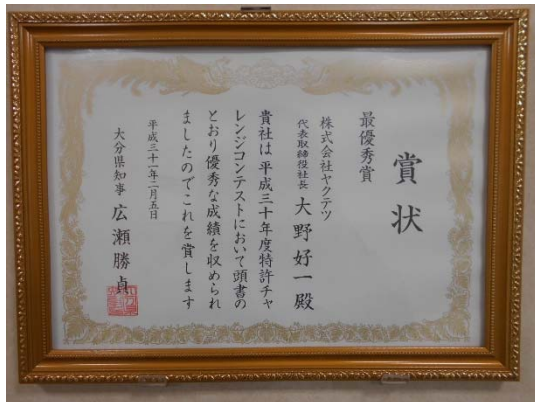 賞状
最優秀賞
株式会社ヤクテツ
代表取締役社長 大野好一殿
貴社は平成三十年度特許チャ
レンジコンテストにおいて頭書の
とおり優秀な成績を収められ
ましたのでこれを賞します
平成三十一年二月五日
大分県知事 広瀬勝貞